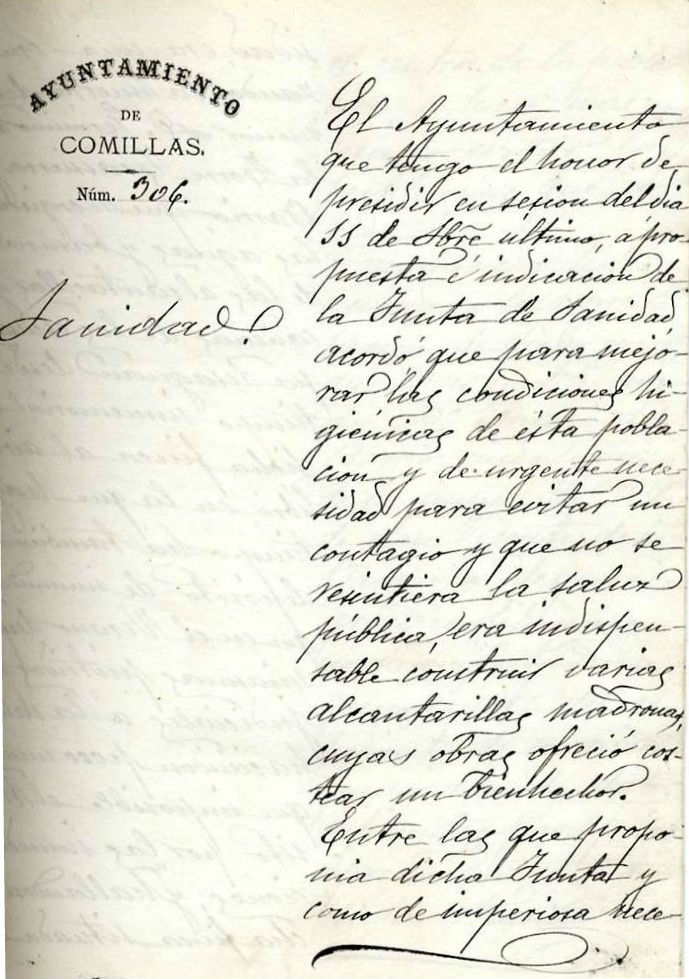 AYUNTAMIENTO
DE
COMILLAS.
Núm. 306.
Sanidad.
El Ayuntamiento
que tengo el honor de
presidir en sesion del dia
11 de 8bre último, á pro-
puesta é indicacion de
la Junta de Sanidad
acordó que para mejo-
rar las condiciones hi-
giénicas de ésta pobla-
cion y de urgente nece-
sidad para evitar un
contagio y que no se
resintiera la saluz
pública, era indispen-
sable construir varias
alcantarillas madronas,
cuyas obras ofreció cos-
tear un bienhechor.
Entre las que propo-
nia dicha Junta y
como de imperiosa nece-